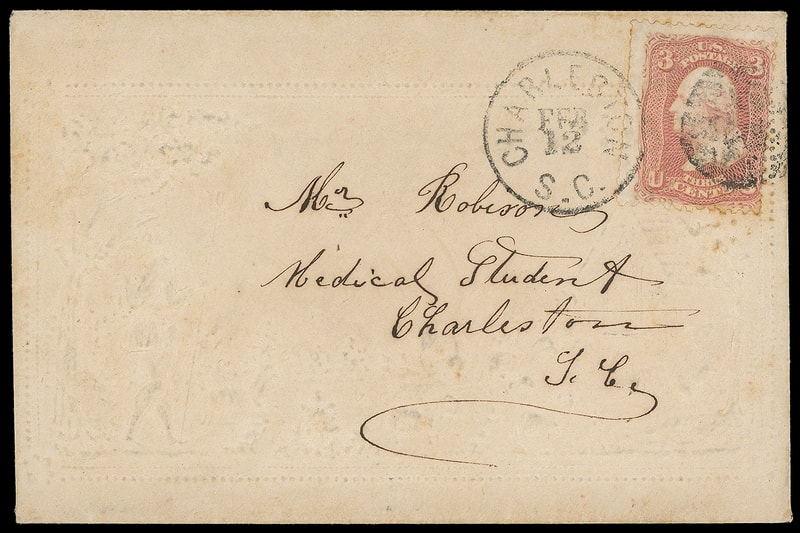 CHARLESTON
FEB
12
S.C.
3 U.S. 3
POSTAGE
U
CENTS
Mr Robinson
Medical Student
Charleston
S. C.